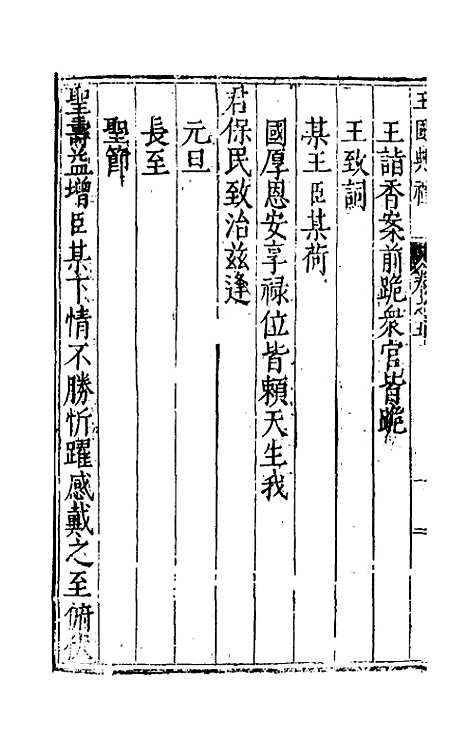 王國典禮 卷之五 十二
王詣香案前跪衆官皆跪
王致詞
某王臣某荷
國厚恩安享祿位皆賴天生我
君保民致治兹逢
元旦
長至
聖節
聖壽益增臣某下情不勝忻躍感戴之至俯伏